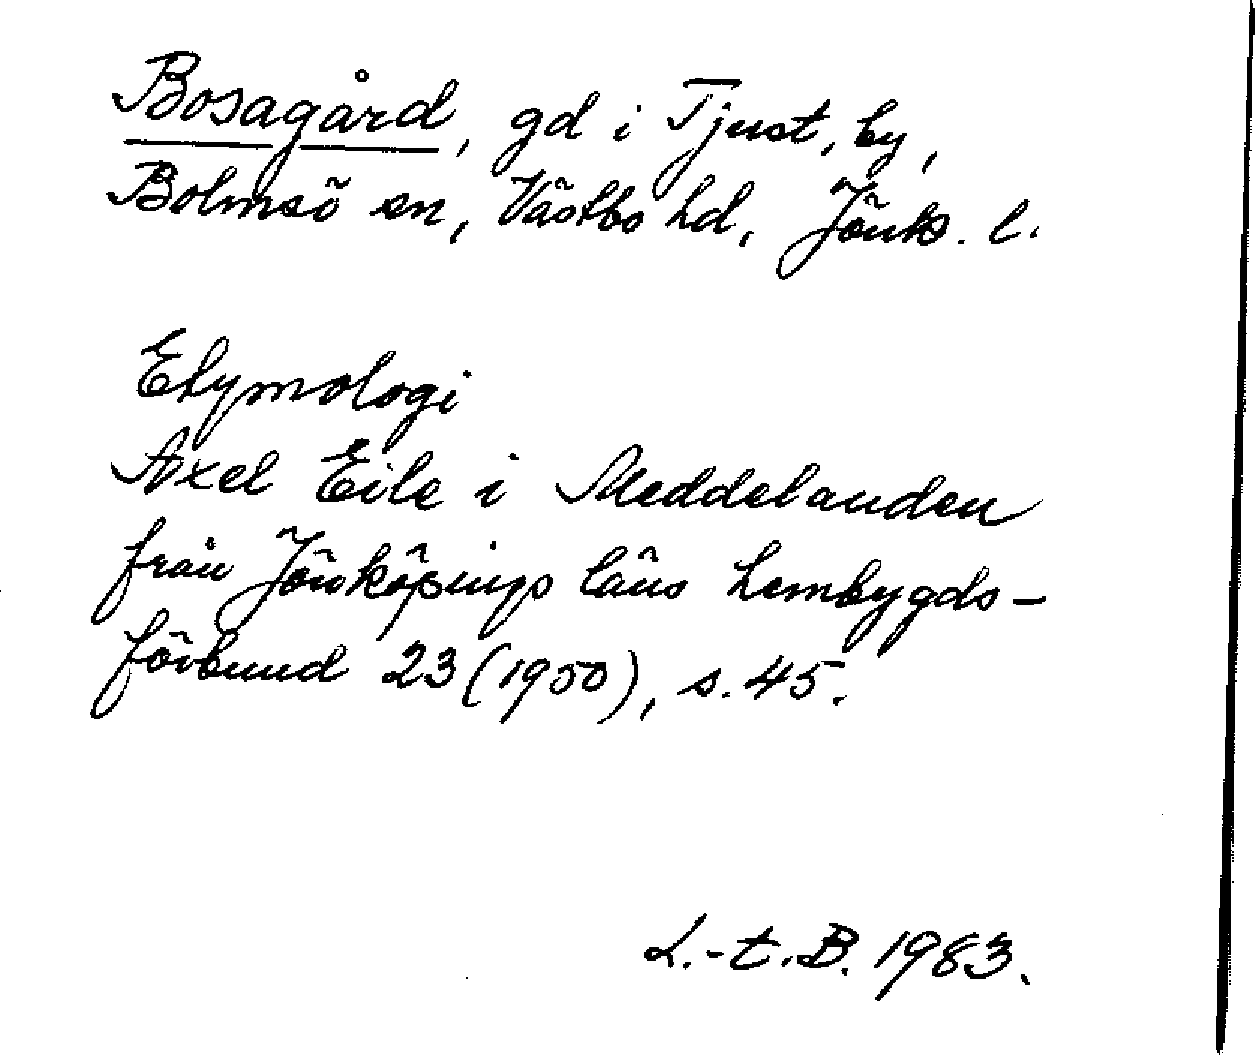 Bosagård, gd i Tjust, by,
Bolmsö sn, Västbo hd, Jönk. l.
Etymologi
Axel Eile i Meddelanden
från Jönköpings läns hembygds-
förbund 23 (1950), s. 45.
L.-t. B. 1983.